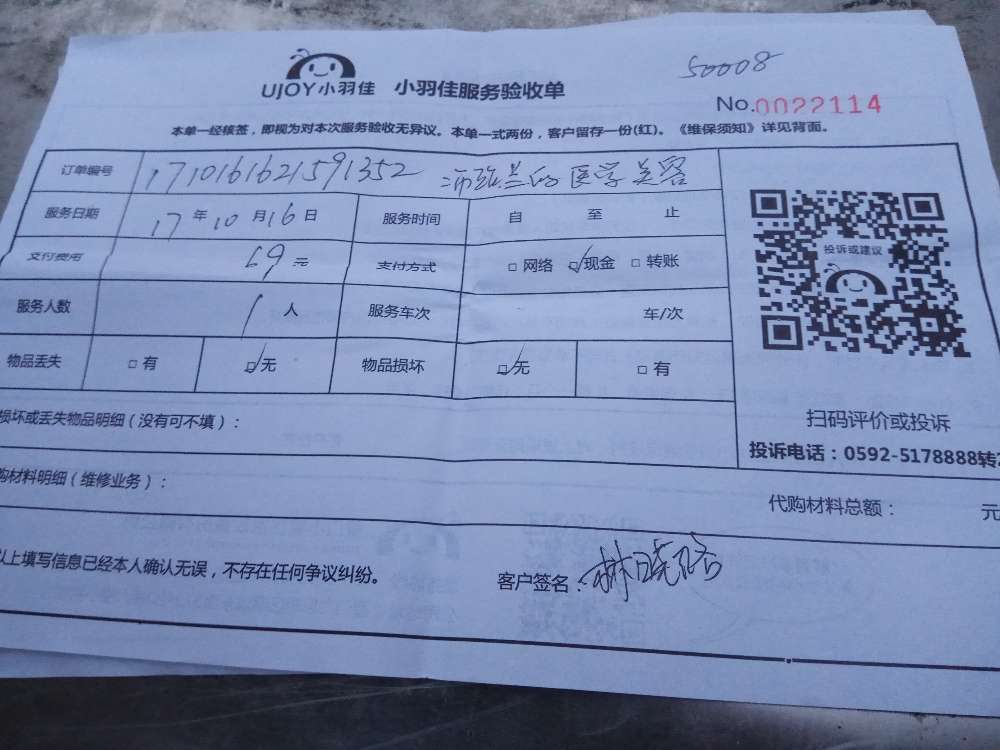 50008
UJOY小羽佳 小羽佳服务验收单
No.0022114
本单一经核签，即视为对本次服务验收无异议。本单一式两份，客户留存一份(红)。《维保须知》详见背面。
订单编号 1710161621591352 医学美容
服务日期 17年10月16日 服务时间 自 至 止
支付费用 69元 支付方式 □网络 ☑现金 □转账
服务人数 1人 服务车次 车/次
物品丢失 □有 ☑无 物品损坏 ☑无 □有
投诉或建议
扫码评价或投诉
投诉电话：0592-5178888转
损坏或丢失物品明细（没有可不填）：
购材料明细（维修业务）：
代购材料总额： 元
以上填写信息已经本人确认无误，不存在任何争议纠纷。
客户签名：林晓